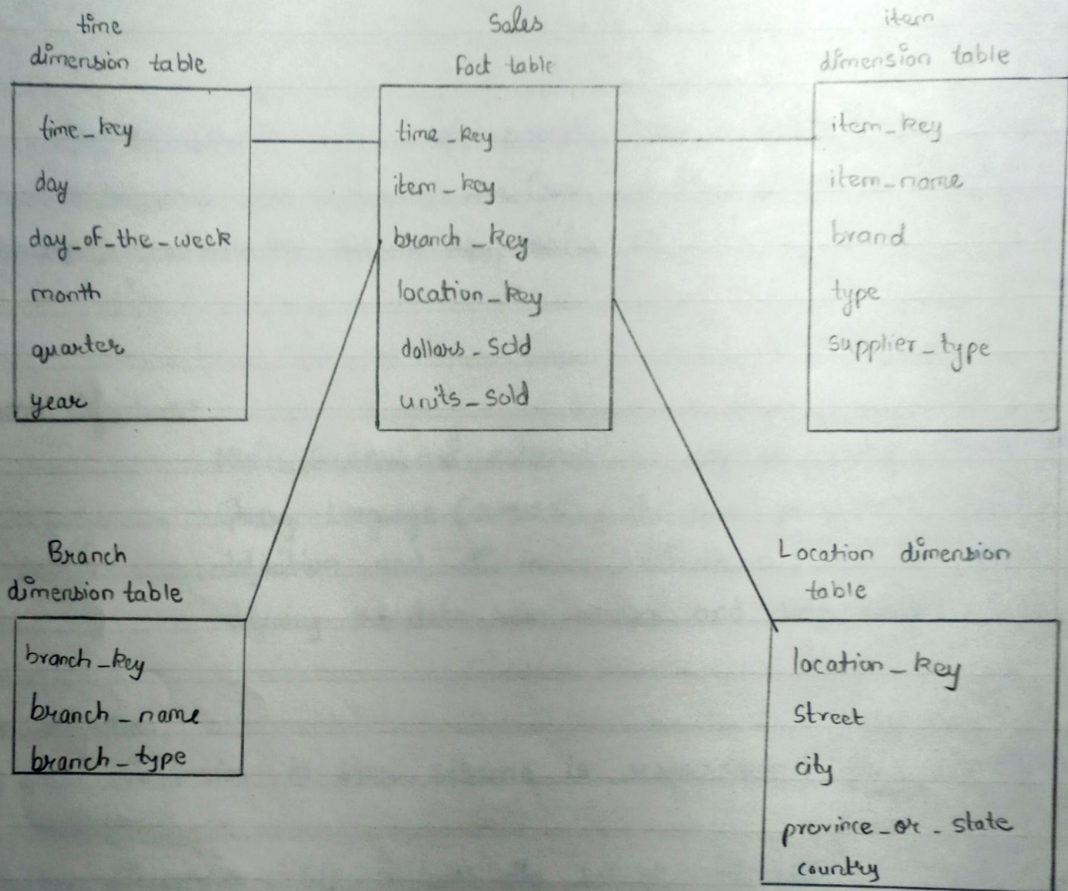 time
dimension table
time_key
day
day_of_the_week
month
quarter
year
Sales
fact table
time_key
item_key
branch_key
location_key
dollars_sold
units_sold
item
dimension table
item_key
item_name
brand
type
supplier_type
Branch
dimension table
branch_key
branch_name
branch_type
Location dimension
table
location_key
street
city
province_or_state
country